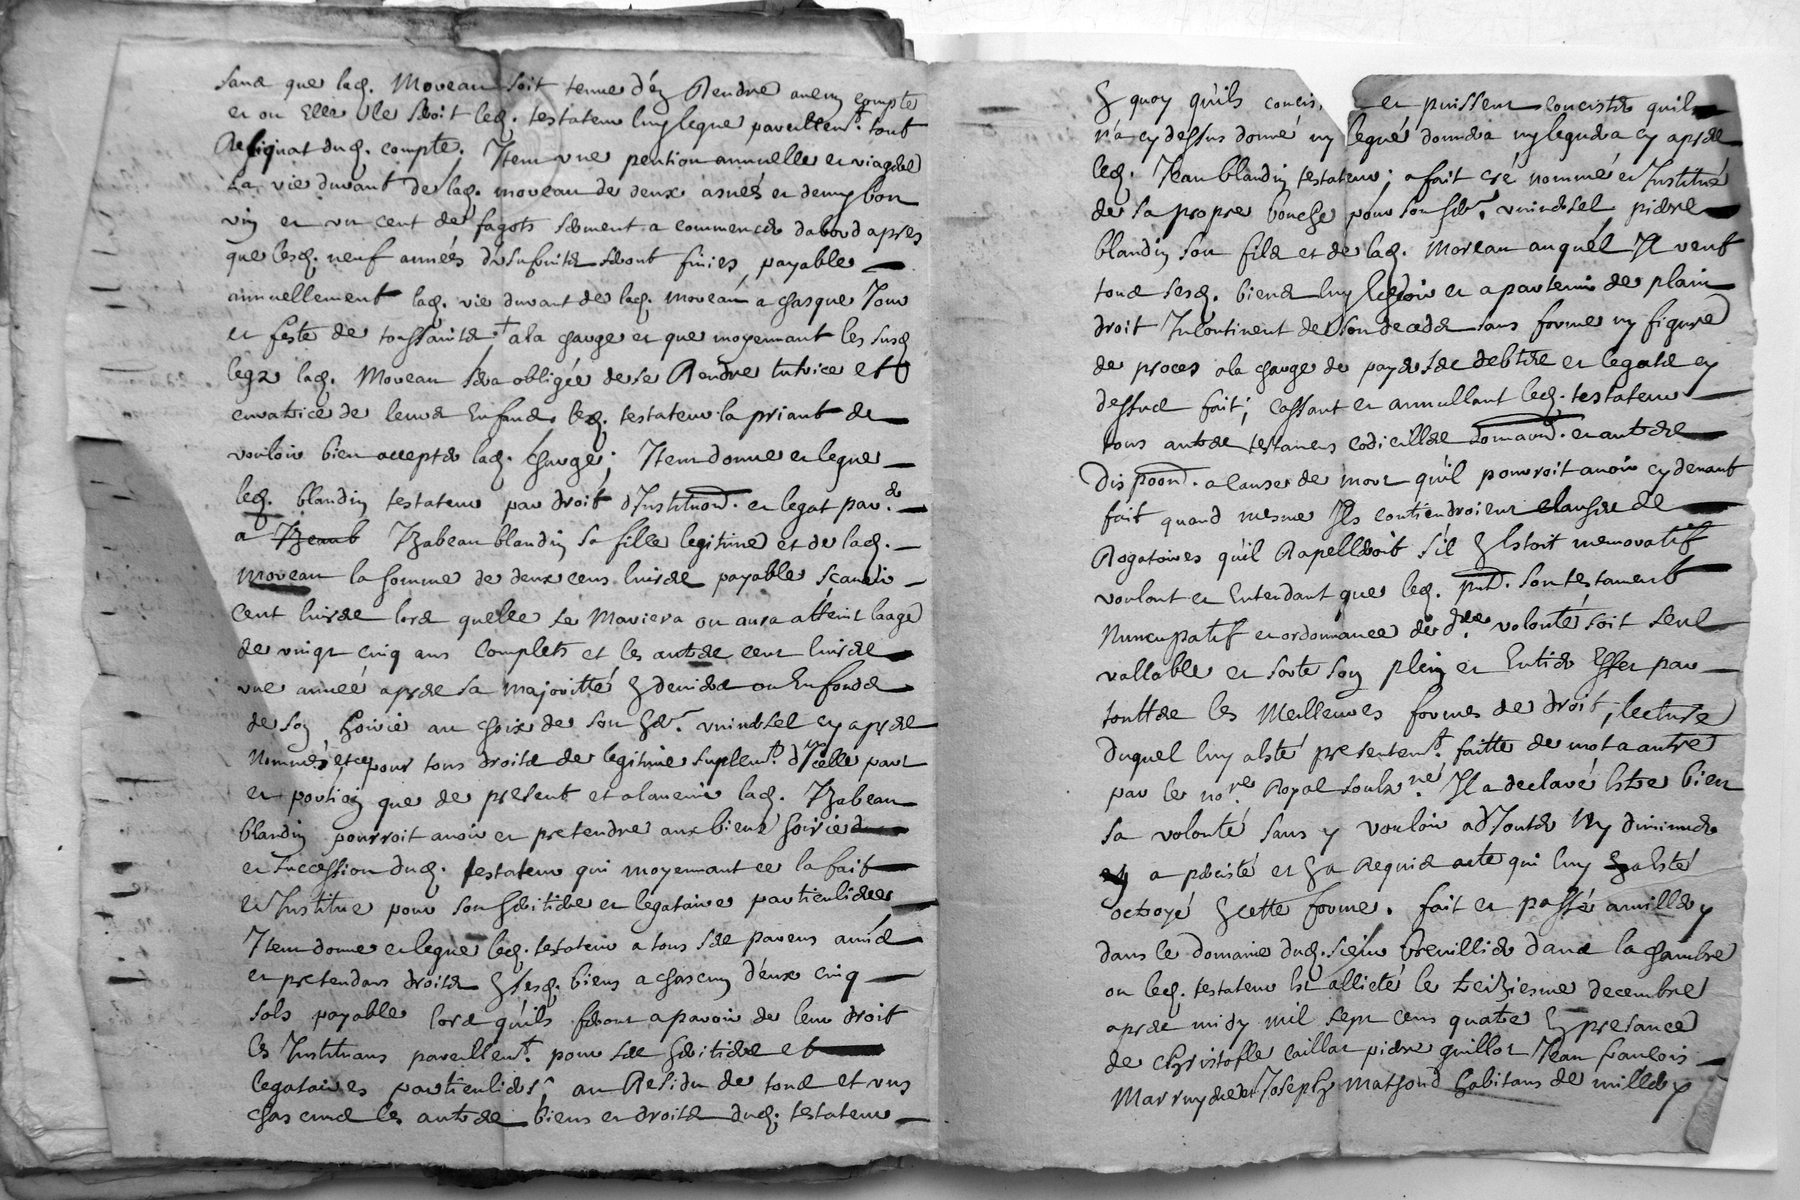 sans que lad. Moreau soit tenue d'en Rendre aucun compte
et ou Elle le seroit led. testateur luy legue pareillemt. tout
Reliquat dud. compte. Item une pention annuelle et viagere
La vie durant de lad. moreau de deux asnées et demy bon
vin et un cent de fagots serment a commencer dabord apres
que lesd. neuf années d'usufruits seront finies, payable
annuellement lad. vie durant de lad. moreau a chasque Jour
et feste de toussaints, + a la charge et que moyennant les susd
legz lad. Moreau sera obligée de se Rendre tutrice et
curatrice de leurs Enfans, led. testateur la priant de
vouloir bien accepter lad. charge; Item donne et legue
led. blandin testateur par droit d'Institu͠on. et legat par.er
a Izeaub Izabeau blandin sa fille legitime et de lad.
moreau la somme de deux cens livres payable sçavoir
cent livres lors quelle se Mariera ou aura atteint laage
de vingt cinq ans complets et les autres cent livres
une année apres sa majoritté en deniers ou En fonds
de son hoirie au choix de son her. universel cy apres
Nommé, et ce pour tous droits de legitime suplemt. d'Icelle part
et portion que de present et alavenir lad. Izabeau
blandin pourroit avoir et pretendre aux biens hoirie
et succession dud. testateur qui moyennant ce la fait
et Institue pour son heritiere et legataire particuliere
Item donne et legue led. testateur a tous ses parens amis
et pretendans droits en sesd. biens a chascun d'eux cinq
sols payable lors qu'ils feront aparoir de leur droit
les Instituans pareillemt. pour ses heritiers et
legataires particuliers, au Residu de tous et uns
chascuns les autres biens et droits dud. testateur
En quoy qu'ils concis et puissent concister quil
n'a cy dessus donné ny legué donnera ny leguera cy apres
led. Jean blandin testateur; a fait cré nommé et Institué
de sa propre bouche pour son her. universel pierre
blandin son fils et de lad. Moreau auquel Il veut
tous sesd. biens luy echoir et apartenir de plain
droit Incontinent de son deceds sans forme ny figure
de proces a la charge de payer ses debtes et legats cy
dessus fait; cassant et annullant led. testateur
tous autres testamens codicilles dona͠on. et autres
dispo͠on. a cause de mort qu'il pourroit avoir cy devant
fait quand mesme Ils contiendroient clauses de
Rogatoires qu'il Rapelleroit s'il En Estoit memoratif
voulant et Entendant que led. pnt. son testament
Nuncupatif et ordonnance de dre. volonté soit seul
vallable et sorte son plein et Entier Effet par
touttes les Meilleures formes de droit, lecture
duquel luy a Esté presentemt. faitte de mot a autre
par le nore. Royal soubzne. Il a declaré Estre bien
sa volonté sans y vouloir adjouter Ny diminuer
a persisté et En a Requis acte qui luy En a Esté
octroyé En cette forme. fait et passé a millery
dans le domaine dud. sieur brevillier dans la chambre
ou led. testateur Est allicté le treiziesme decembre
apres midy mil sept cens quatre En presance
de christofle caillat pierre guillot Jean francois
Joseph Mathoud habitans de millery